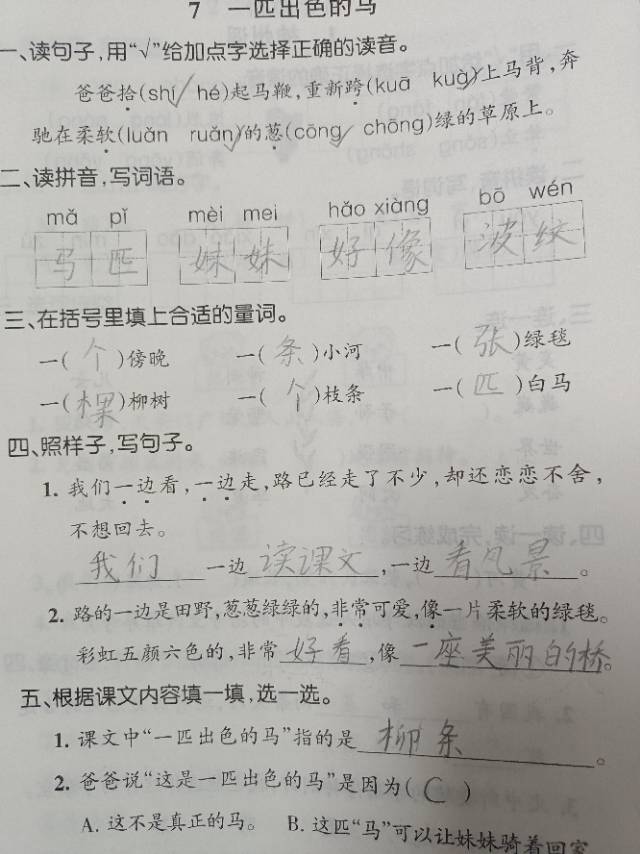 7 一匹出色的马
一、读句子,用“√”给加点字选择正确的读音。
爸爸拾(shí√ hé)起马鞭,重新跨(kuā kuà√)上马背,奔
驰在柔软(luǎn ruǎn√)的葱(cōng√ chōng)绿的草原上。
二、读拼音,写词语。
mǎ pǐ mèi mei hǎo xiàng bō wén
马匹 妹妹 好像 波纹
三、在括号里填上合适的量词。
一(个)傍晚 一(条)小河 一(张)绿毯
一(棵)柳树 一(个)枝条 一(匹)白马
四、照样子,写句子。
1. 我们一边看,一边走,路已经走了不少,却还恋恋不舍,
不想回去。
我们一边读课文,一边看风景。
2. 路的一边是田野,葱葱绿绿的,非常可爱,像一片柔软的绿毯。
彩虹五颜六色的,非常好看,像一座美丽的桥。
五、根据课文内容填一填,选一选。
1. 课文中“一匹出色的马”指的是柳条。
2. 爸爸说“这是一匹出色的马”是因为(C)
A. 这不是真正的马。 B. 这匹“马”可以让妹妹骑着回家